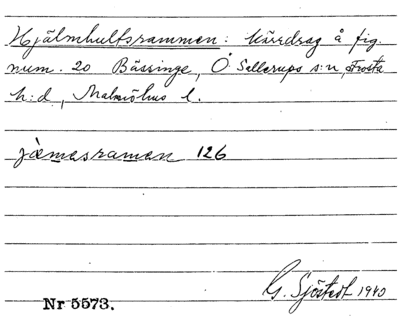 Hjälmhultsrammen: kärrdrag å fig.
num. 20 Bässinge, Ö. Sallerups s:n, Frosta
h:d, Malmöhus l.
jæmasramen 126
G. Sjöstedt 1940
Nr 5573.